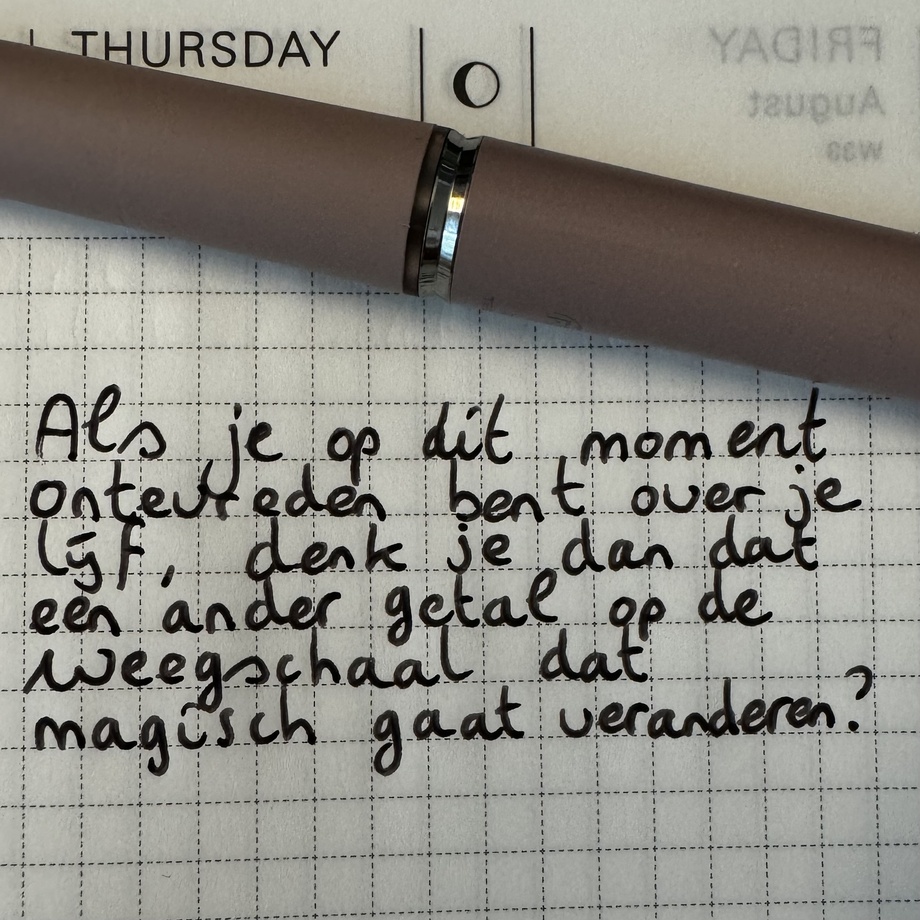 THURSDAY
FRIDAY
August
W33
Als je op dit moment
ontevreden bent over je
lijf, denk je dan dat
een ander getal op de
weegschaal dat
magisch gaat veranderen?